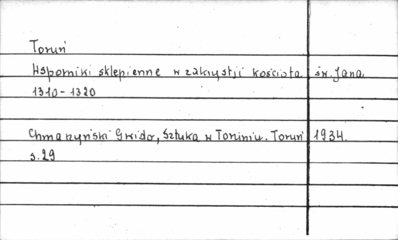 Toruń
Wsporniki sklepienne w zakrystji kościoła św. Jana.
1310-1320
Chmarzyński Gwido, Sztuka w Toruniu. Toruń 1934.
s.29